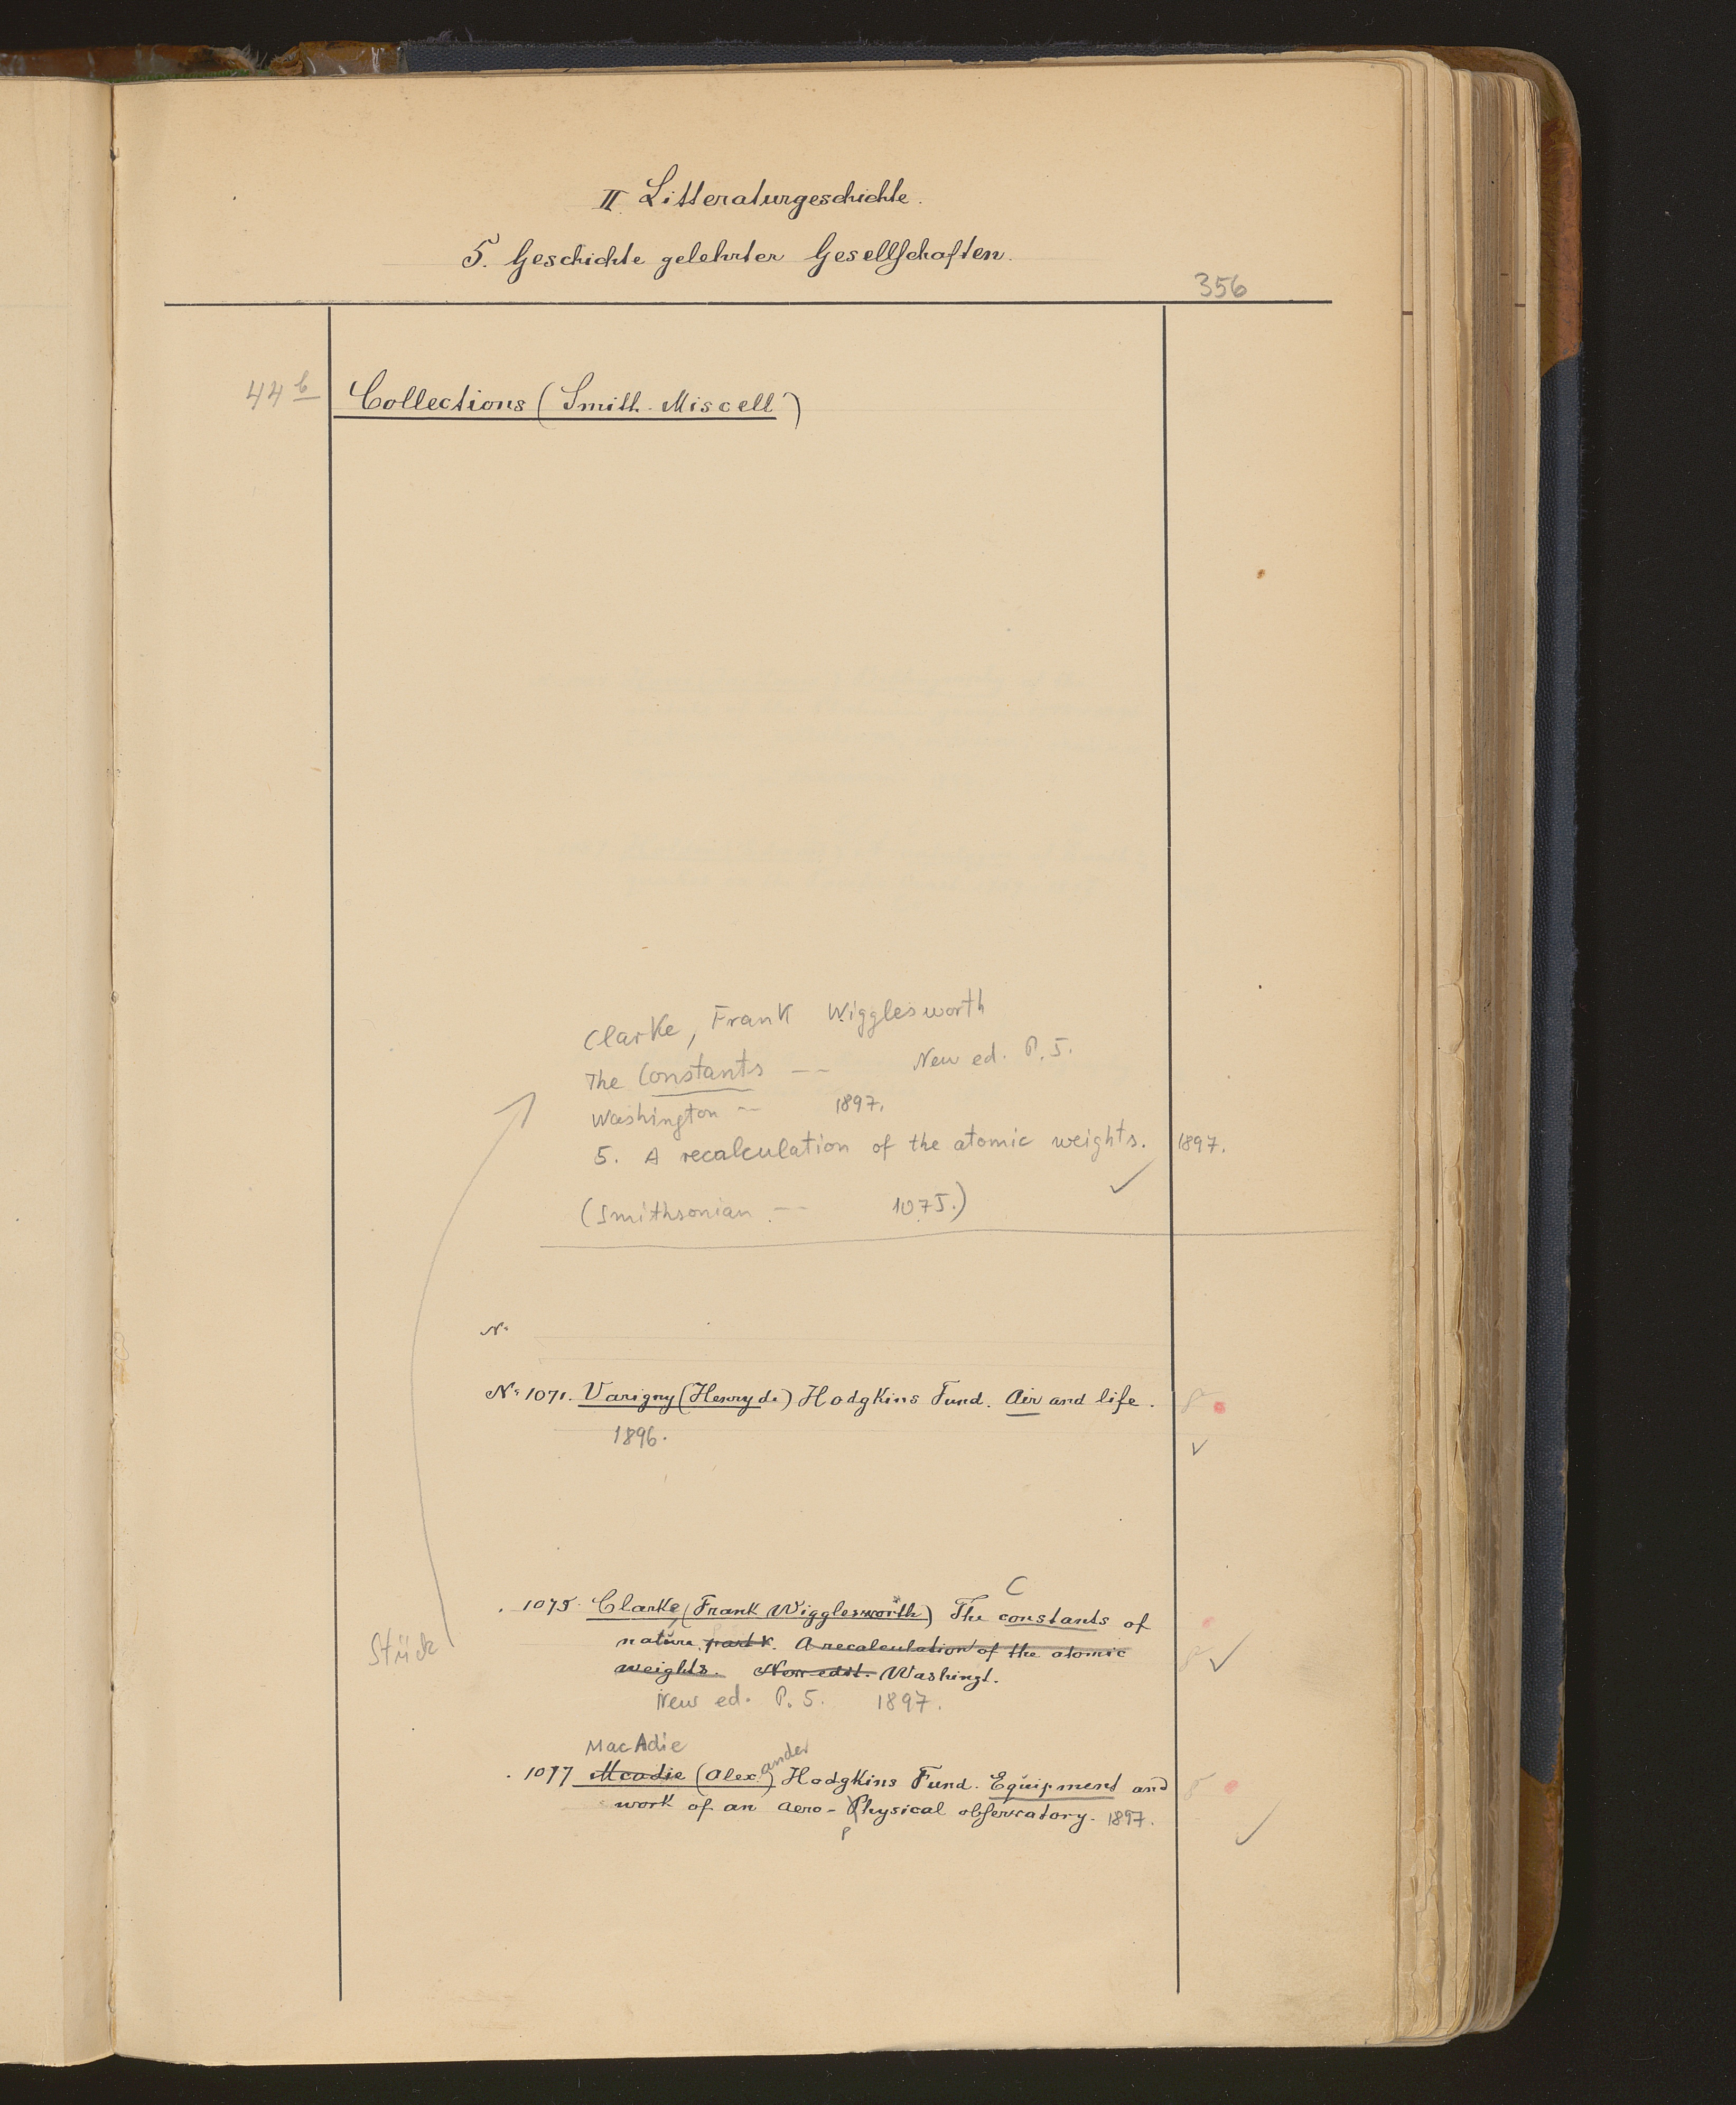 II. Litteraturgeschichte.
5. Geschichte gelehrter Gesellschaften.
356
44 b
Collections (Smith. Miscell.)
Clarke, Frank Wigglesworth
The Constants — New ed. P. 5.
Washington — 1897.
5. A recalculation of the atomic weights. 1897.
(Smithsonian — 1075.)
N°
N° 1071. Varigny (Henry de) Hodgkins Fund. Air and life.
1896.
C
. 1075. Clarke, (Frank Wigglesworth) The constants of
Stück
nature, part V. A recalculation of the atomic
weights. New edit. Washingt.
New ed. P. 5. 1897.
MacAdie
ander
. 1077 Mcadie (Alex.) Hodgkins Fund. Equipment and
work of an aero-Physical observatory. 1897.
p